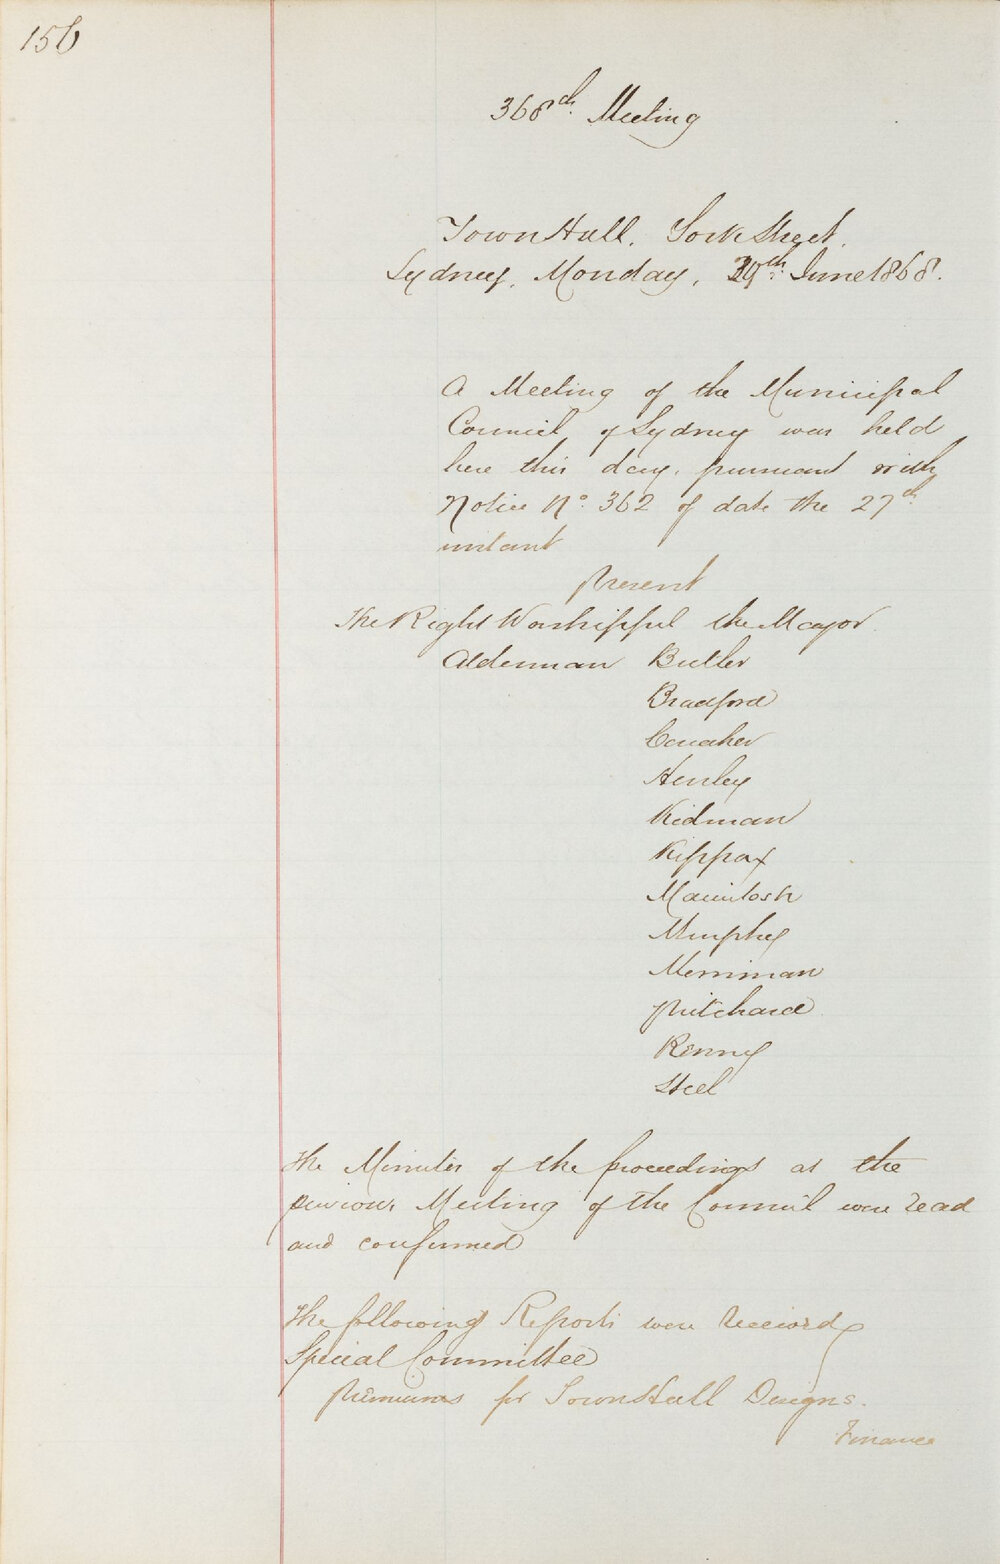 156
368th Meeting
Town Hall, York Street.
Sydney, Monday, 29th June 1868.
A Meeting of the Municipal
Council of Sydney was held
here this day, pursuant with
Notice No. 362 of date the 27th
instant
Present
The Right Worshipful the Mayor
Alderman Butler
Bradford
Caraher
Henley
Kidman
Kippax
Macintosh
Murphy
Merriman
Pritchard
Renny
Steel
The Minutes of the proceedings at the
previous Meeting of the Council were read
and confirmed
The following Reports were received
Special Committee
Premiums for Town Hall Designs.
Finance